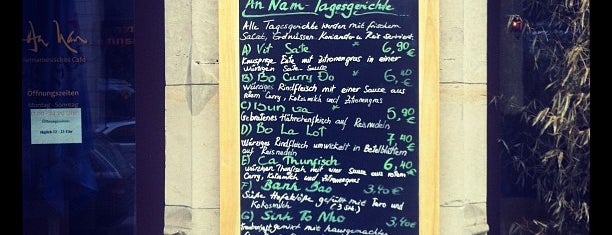 An Nam
Vietnamesisches Café
Öffnungszeiten
Montag - Sonntag
Öffnungszeiten
täglich 12 - 23 Uhr
An Nam - Tagesgerichte
Alle Tagesgerichte werden mit frischem
Salat, Erdnüssen, Koriander u. Reis serviert.
A) Vit Sate 6,90 €
Knusprige Ente mit Zitronengras in einer
würzigen Sate-Sauce
B) Bo Curry Do 6,40 €
Würziges Rindfleisch mit einer Sauce aus
rotem Curry, Kokosmilch und Zitronengras
C) Bun Ga 5,90 €
Gebratenes Hühnchenfleisch auf Reisnudeln
D) Bo La Lot 7,40 €
Würziges Rindfleisch umwickelt in Betelblättern
auf Reisnudeln
E) Ca Thunfisch 6,40 €
würziger Thunfisch mit einer Sauce aus rotem
Curry, Kokosmilch und Zitronengras
F) Banh Bao 3,40 €
Süße Hefeklöße gefüllt mit Taro und
Kokosmilch (3 Stk.)
G) Sinh To Nho 3,40 €
Traubensaft gemixt mit hausgemachter